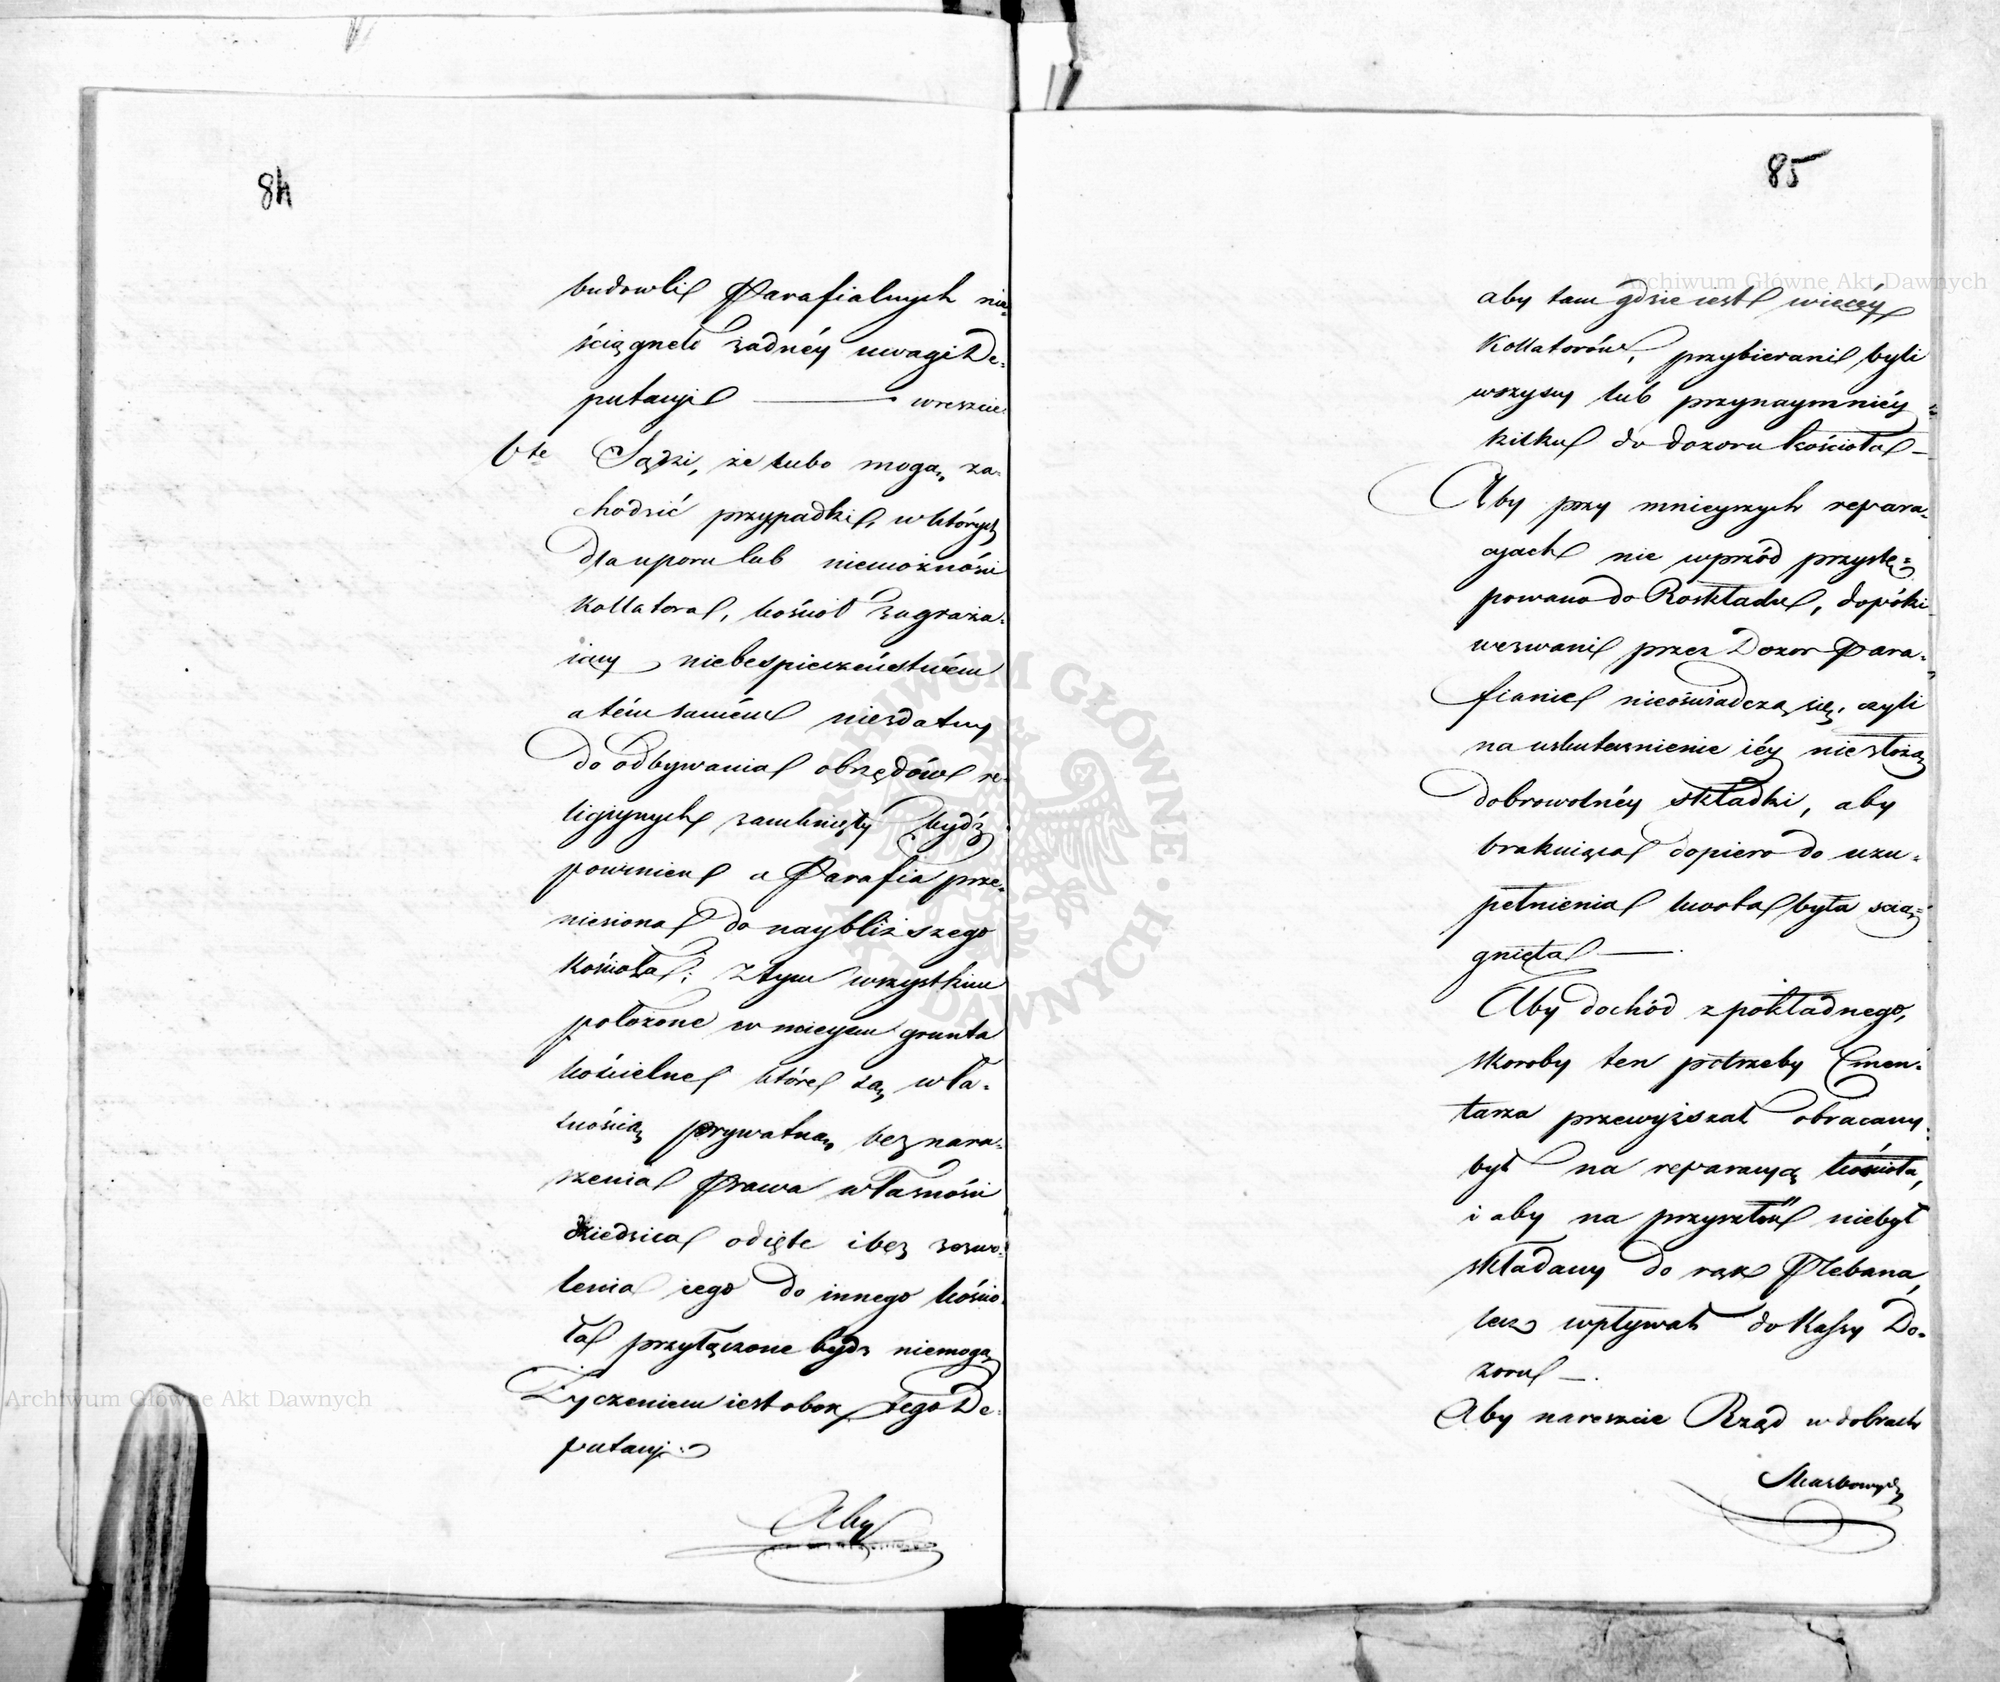 84
budowli Parafialnych nie
ściągneło żadnéy uwagi De-
putacyi ——— wreszcie
6te Sądzi, że lubo mogą za-
chodzić przypadki, w których
dla uporu lub niemożności
Kollatora, kościół zagraża-
iący niebespieczeństwem
a tém samém niezdatny
do odbywania obrzędów re-
ligiynych zamknięty bydź
powinien a Parafia prze-
niesiona do naybliższego
kościoła; Z tym wszystkim
położone w mieyscu grunta
kościelne które są wła-
snością prywatną bez nara-
żenia Prawa własności
dziedzica odięte i bez zezwo-
lenia iego do innego kościo-
ła przyłączone bydź niemogą
Życzeniem iest obok tego De-
putacyi
Aby
85
aby tam gdzie iest więcéy
Kollatorów, przybierani byli
wszyscy lub przynaymniéy
kilku do dozoru kościoła —
Aby przy mnieyszych repara-
cyach nie wprzód przystę-
powano do Rozkładu, dopóki
wezwani przez Dozór Para-
fianie nieoświadczą się, czyli
na uskutecznienie iéy nie złożą
dobrowolnéy składki, aby
brakuiąca dopiero do uzu-
pełnienia kwota była ścią-
gnięta —
Aby dochód z pokładnego,
skoroby ten potrzeby Cmen-
tarza przewyższał obracany
był na reparacyą kościoła,
i aby na przyszłość niebył
składany do rąk Plebana,
lecz wpływał do Kassy Do-
zoru —.
Aby nareszcie Rząd w dobrach
Skarbowych
Archiwum Główne Akt Dawnych
Archiwum Główne Akt Dawnych
ARCHIWUM GŁÓWNE AKT DAWNYCH